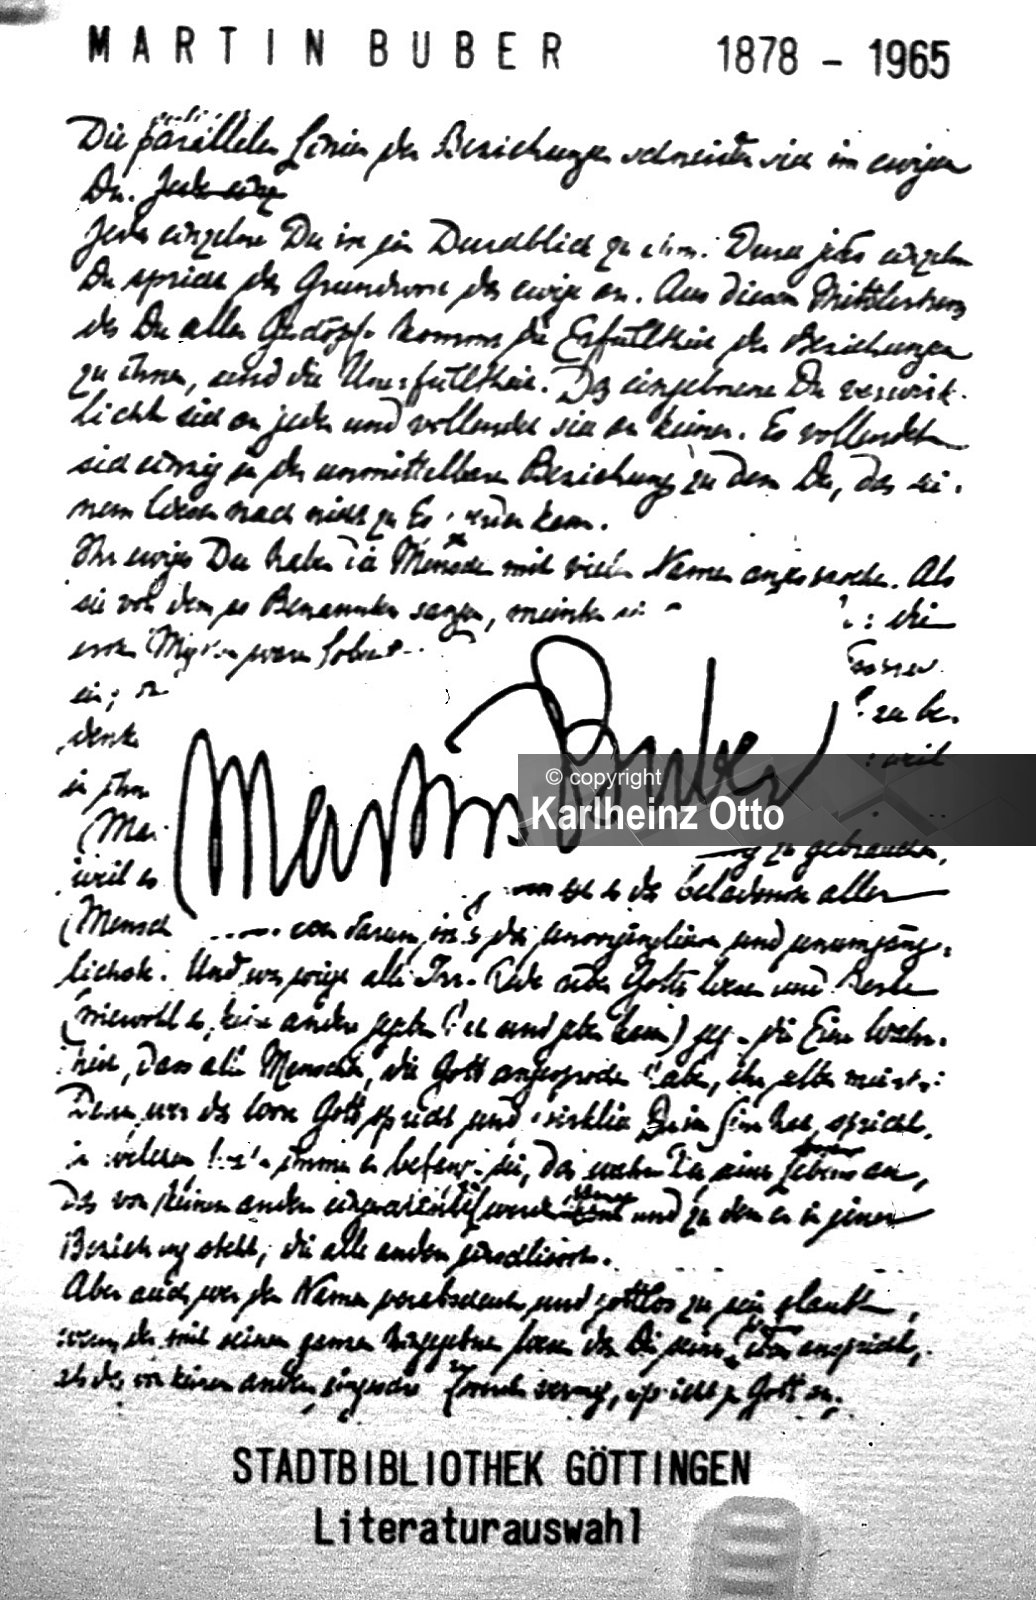 MARTIN BUBER 1878 - 1965
Die parallelen Linien der Beziehungen schneiden sich im ewigen
Du. Jede einz
Jedes einzelne Du ist ein Durchblick zu ihm. Durch jedes einzelne
Du spricht das Grundwort das ewige an. Aus diesem Mittlertum
des Du aller Geschöpfe kommt die Erfülltheit der Beziehungen
zu ihnen, und die Unerfülltheit. Das eingeborene Du verwirk-
licht sich an jedem und vollendet sich an keinem. Es vollendet
sich einzig in der unmittelbaren Beziehung zu dem Du, das sei-
nem Wesen nach nicht zu Es werden kann.
Ihr ewiges Du haben die Menschen mit vielen Namen angesprochen. Als
sie von dem so Benannten sangen, meinten die
ersten Mythen waren Lob
ein;
denk
zu be-
in ihm
weil
© copyright
Karlheinz Otto
Martin Buber
zu gebrauchen,
weil es
es das beladenste aller
Mensch darum ist's das unvergänglichste und unumgäng-
lichste. Und was wiegt alle Irr-Rede über Gottes Wesen und Werke
(wiewohl es keine andre gegeben hat und geben kann) gegen die Eine Wahr-
heit, dass alle Menschen, die Gott angesprochen haben, ihn selbst meinten?
Denn wer das Wort Gott spricht und wirklich Du im Sinn hat, spricht,
in welchem Wahn immer er befangen sei, das wahre Du seines Lebens an,
das von keinem andern eingeschränkt werden und zu dem er in einer
Beziehung steht, die alle andern einschliesst.
Aber auch wer den Namen verabscheut und gottlos zu sein glaubt,
wenn der mit seinem ganzen hingegebnen Wesen das Du seines Lebens anspricht,
als das von keinem andern eingeschränkt werden vermag, spricht er Gott an.
STADTBIBLIOTHEK GÖTTINGEN
Literaturauswahl